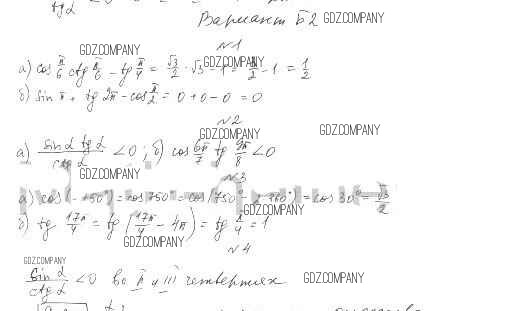 Вариант Б2 GDZ.COMPANY
N1
GDZ.COMPANY
а) cos π/6 ctg π/6 - tg π/4 = √3/2 · √3 - 1 = 3/2 - 1 = 1/2
GDZ.COMPANY
б) sin π + tg 2π - cos π/2 = 0 + 0 - 0 = 0
N2
GDZ.COMPANY GDZ.COMPANY
а) sin α tg α / ctg α < 0; б) cos 6π/7 tg 9π/8 < 0
GDZ.COMPANY
N3
а) cos(-750°) = cos 750° = cos(750° - 2·360°) = cos 30° = √3/2
GDZ.COMPANY
б) tg 17π/4 = tg (17π/4 - 4π) = tg π/4 = 1
GDZ.COMPANY
N4
GDZ.COMPANY
sin α / ctg α < 0 во II и III четвертях. GDZ.COMPANY